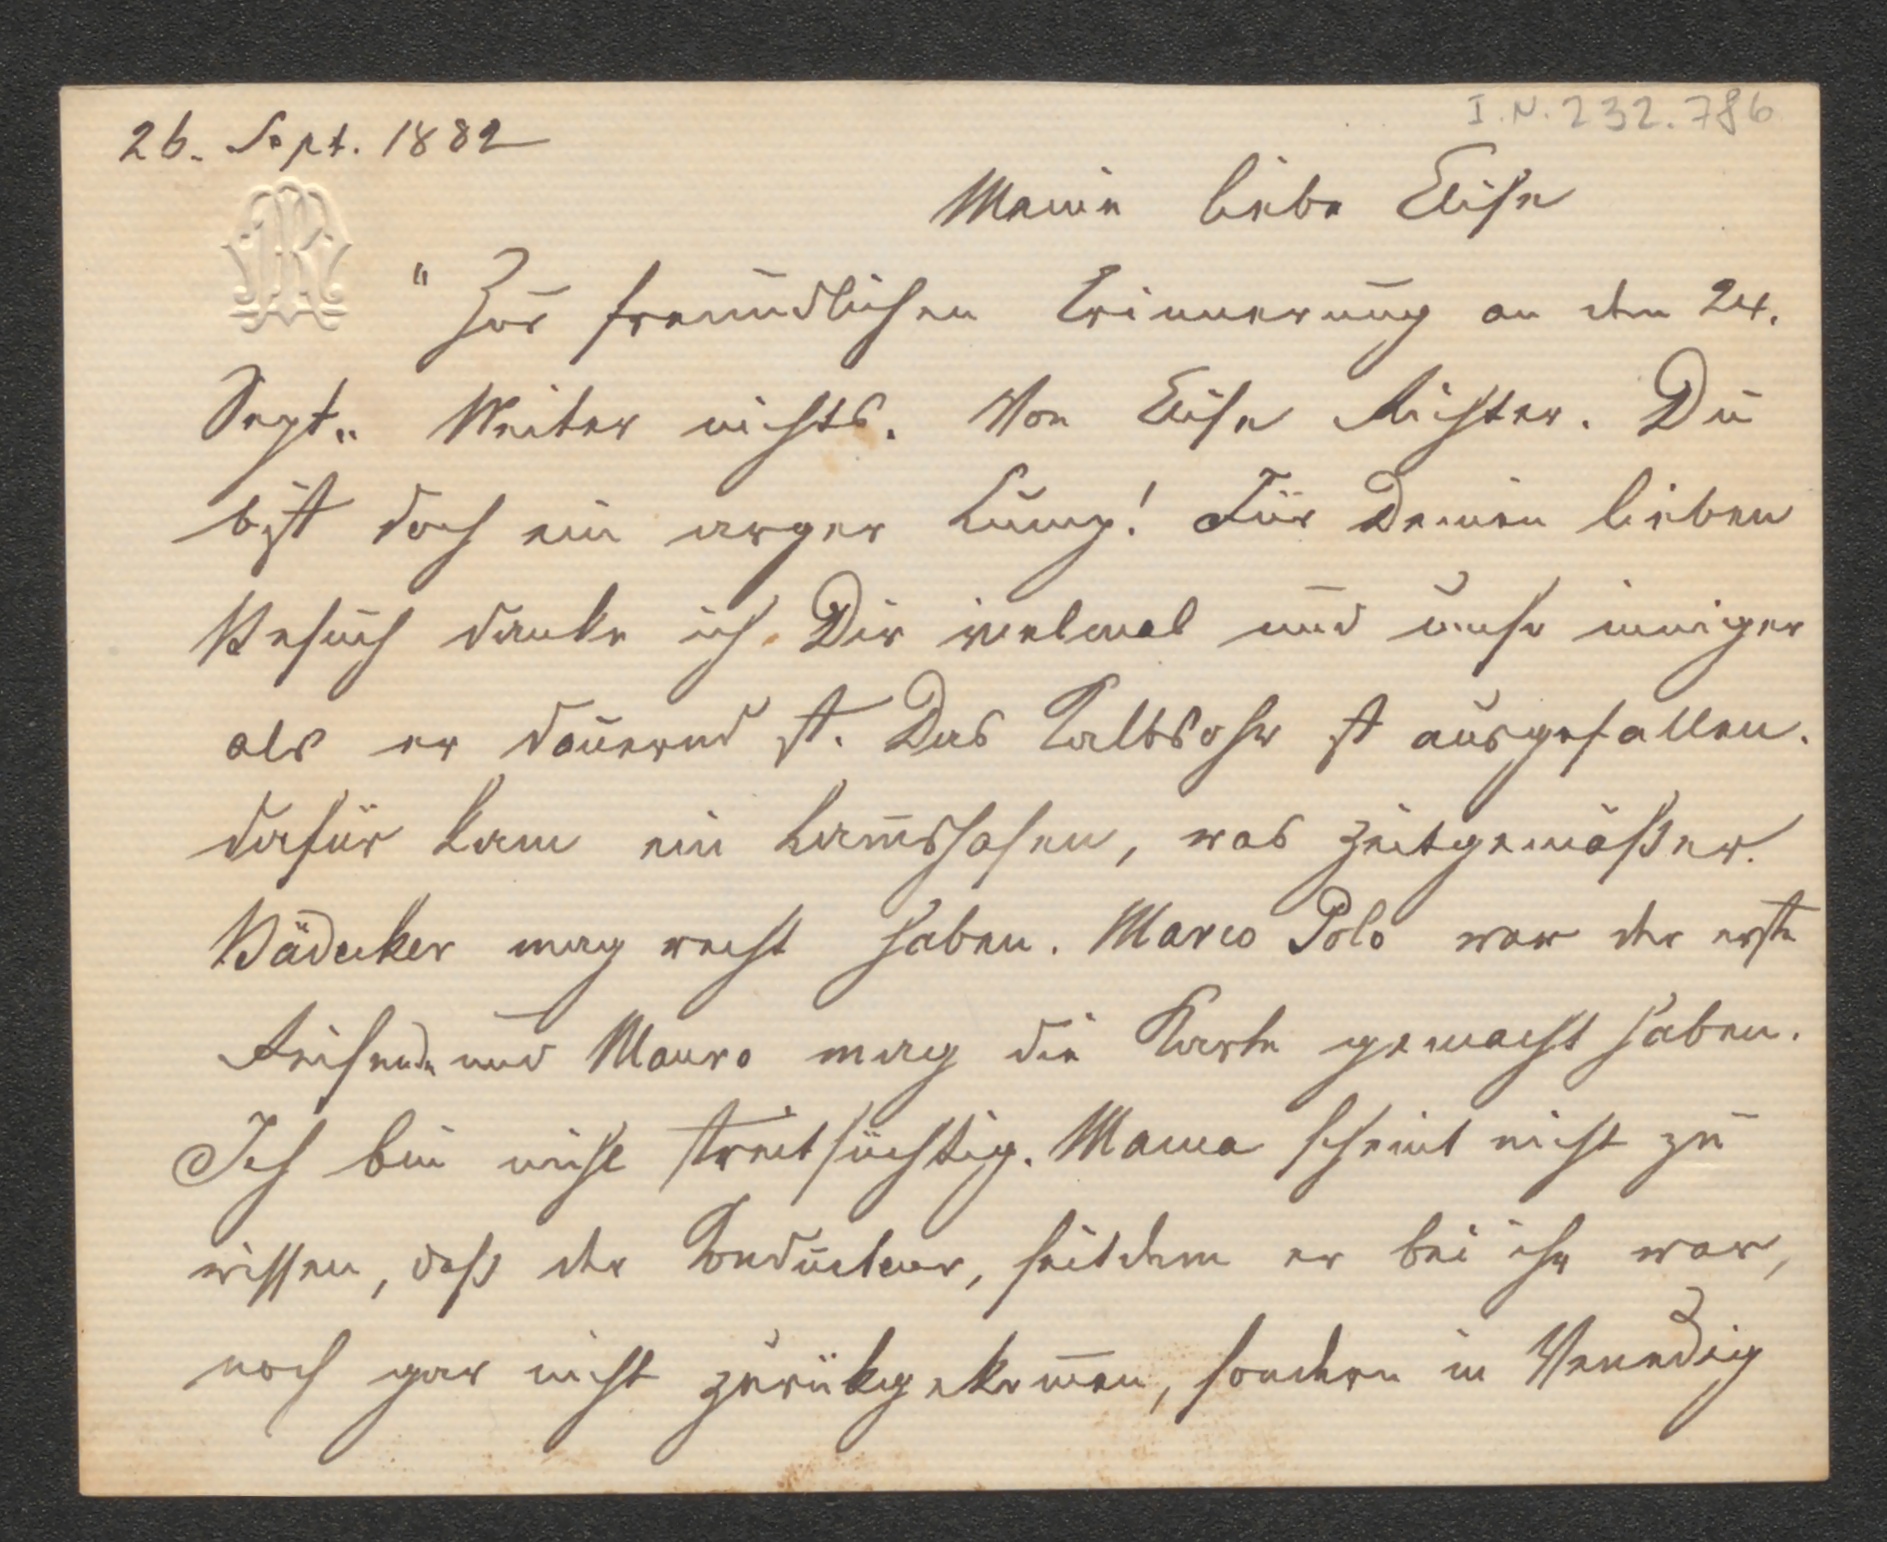 I.N. 232.786
26. Sept. 1882
Meine liebe Elise
"Zur freundlichen Erinnerung an den 24.
Sept." Weiter nichts. Von Elise Richter. Du
bist doch ein arger Lump! Für Deinen lieben
Besuch danke ich Dir vielmal und umso inniger
als er dauernd ist. Das Kalbsohr ist ausgefallen.
dafür kam ein, was zeitgemäßer.
Bädecker mag recht haben. Marco Polo war der erste
Reisende und Mauro mag die Karte gemacht haben.
Ich bin nicht streitsüchtig. Mama scheint nicht zu
wissen, daß der Conducteur, seitdem er bei ihr war,
noch gar nicht zurükgekom̄en, sondern in Venedig